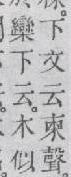 下文云柬聲。
欒下云。木似